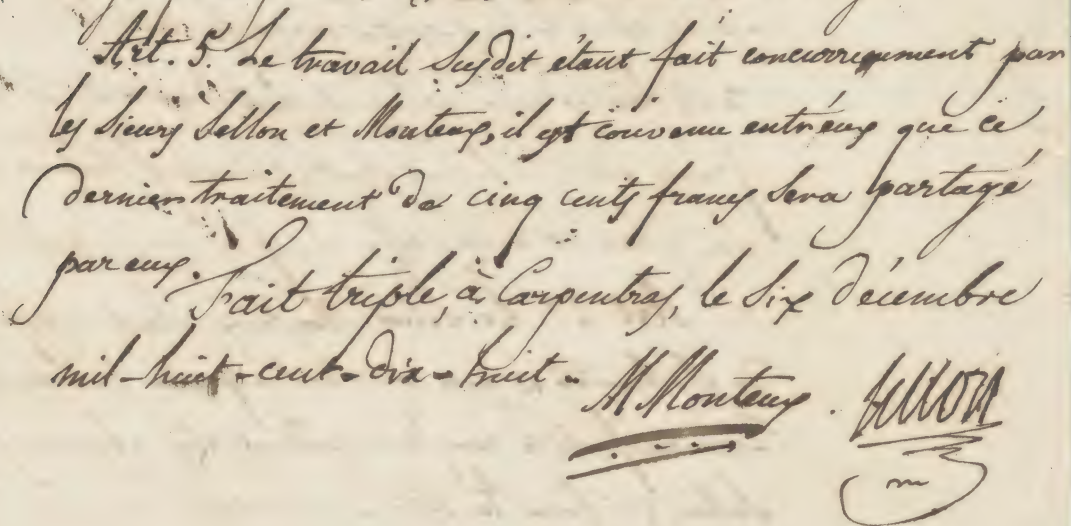 Art. 5. Le travail susdit étant fait concurremment par
les sieurs Sellon et Monteux, il est convenu entr'eux que ce
dernier traitement de cinq cents francs sera partagé
par eux.
Fait triple, à Carpentras, le six décembre
mil-huit-cent-dix-huit.
M Monteux. Sellon